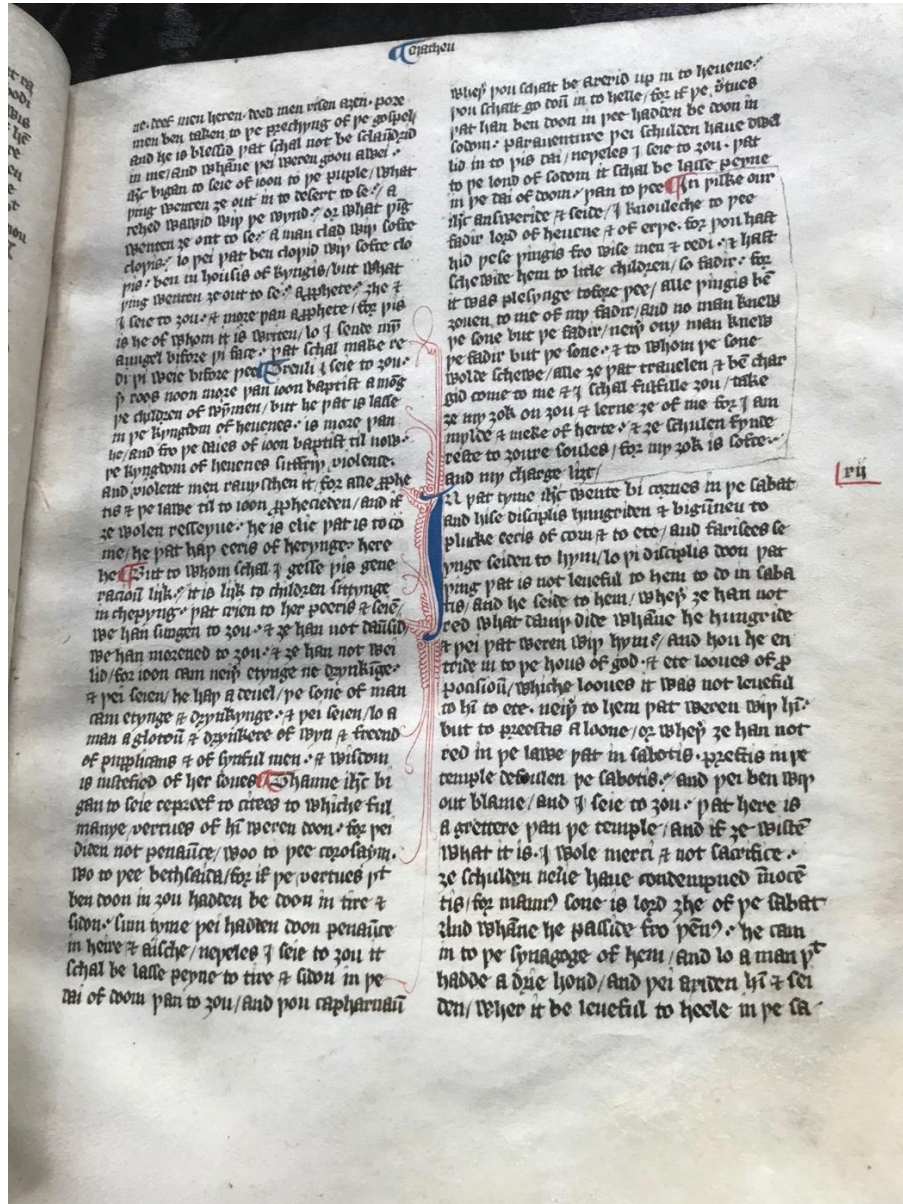 Matheu
ne· deef men heren· deed men risen aȝen· pore
men ben taken to þe prechyng of þe gospel/
and he is blessid þat schal not be sclaūdrid
in me/ and whāne þei weren goon awei·
ihc bigan to seie of ioon to þe puple/ what
þing wenten ȝe out in to desert to se· a
rehed wawid wiþ þe wynd· or what þīg
wenten ȝe out to se· a man clad wiþ softe
cloþis· lo þei þat ben cloþid wiþ softe clo
þis· ben in housis of kyngis/ but what
þing wenten ȝe out to se· a ꝓphete· ȝhe ⁊
I seie to ȝou· ⁊ more þan a ꝓphete/ for þis
is he of whom it is writen/ lo I sende myn
aungel bifore þi face· þat schal make re
di þi weie bifore þee Treuli I seie to ȝou·
þ roos noon more þan ioon baptist amōg
þe children of wȳmen/ but he þat is lasse
in þe kyngdom of heuenes· is more þan
he/ and fro þe daies of ioon baptist til now·
þe kyngdom of heuenes suffriþ violence·
and violent men rauyschen it/ for alle ꝓphe
tis ⁊ þe lawe til to ioon ꝓphecieden/ and if
ȝe wolen resseyue· he is elie þat is to co
me/ he þat haþ eeris of herynge· here
he But to whom schal I gesse þis gene
racioū lijk· it is lijk to children sittynge
in chepyng· þat crien to her peeris ⁊ seiē/
we han sungen to ȝou· ⁊ ȝe han not daūsid/
we han morened to ȝou· ⁊ ȝe han not wei
lid/ for ioon cam neiþ etynge ne drynkīge·
⁊ þei seien/ he haþ a deuel/ þe sone of man
cam etynge ⁊ drynkynge· ⁊ þei seien/ lo a
man a glotoū ⁊ drynkere of wyn ⁊ freend
of pupplicans ⁊ of synful men· ⁊ wisdom
is iustefied of her sones Thanne ihc bi
gan to seie repreef to citees to whiche ful
manye vertues of hī weren doon· for þei
diden not penaūce/ woo to þee corosaym·
wo to þee bethsaida/ for if þe vertues þt
ben doon in ȝou hadden be doon in tire ⁊
sidon· sum tyme þei hadden doon penaūce
in heire ⁊ aische/ neþeles I seie to ȝou it
schal be lasse peyne to tire ⁊ sidon in þe
dai of doom þan to ȝou/ and þou capharnaū
wheþ þou schalt be arerid up in to heuene·
þou schalt go doū in to helle/ for if þe v̓tues
þat han ben doon in þee hadden be doon in
sodom· parauenture þei schulden haue dwel
lid in to þis dai/ neþeles I seie to ȝou· þat
to þe lond of sodom it schal be lasse peyne
in þe dai of doom· þan to þee In þilke our
ihc answeride ⁊ seide/ I knouleche to þee
fadir lord of heuene ⁊ of erþe· for þou hast
hid þese þingis fro wise men ⁊ redi· ⁊ hast
schewide hem to litle children/ so fadir· for
it was plesynge tofore þee/ alle þingis bē
ȝouen to me of my fadir/ and no man knew
þe sone but þe fadir/ neiþ ony man knew
þe fadir but þe sone· ⁊ to whom þe sone
wolde schewe/ alle ȝe þat trauelen ⁊ bē char
gid come to me ⁊ I schal fulfille ȝou/ take
ȝe my ȝok on ȝou ⁊ lerne ȝe of me for I am
mylde ⁊ meke of herte· ⁊ ȝe schulen fynde
reste to ȝoure soules/ for my ȝok is softe·
and my charge liȝt/
xij
In þat tyme ihc wente bi cornes in þe sabat
and hise disciplis hungriden ⁊ bigūneu to
plucke eeris of corn ⁊ to ete/ and farisees se
ynge seiden to hym/ lo þi disciplis doon þat
þing þat is not leueful to hem to do in saba
tis/ and he seide to hem/ wheþ ȝe han not
red what dauiþ dide whāne he hungride
⁊ þei þat weren wiþ hym· and hou he en
tride in to þe hous of god· ⁊ ete looues of ꝓ
posisioū/ whiche looues it was not leueful
to hī to ete· neiþ to hem þat weren wiþ hī·
but to preestis aloone/ or wheþ ȝe han not
red in þe lawe þat in sabotis· prestis in þe
temple defoulen þe sabotis· and þei ben wiþ
out blame/ and I seie to ȝou· þat here is
a grettere þan þe temple/ and if ȝe wistē
what it is· I wole merci ⁊ not sacrifice·
ȝe schulden neue haue condempned īnocē
tis/ for mannꝰ sone is lord ȝhe of þe sabat
And whāne he passide fro þēnꝰ· he cam
in to þe synagoge of hem/ and lo a man þt
hadde a drie hond/ and þei axiden hī ⁊ sei
den/ wher it be leueful to heele in þe sa